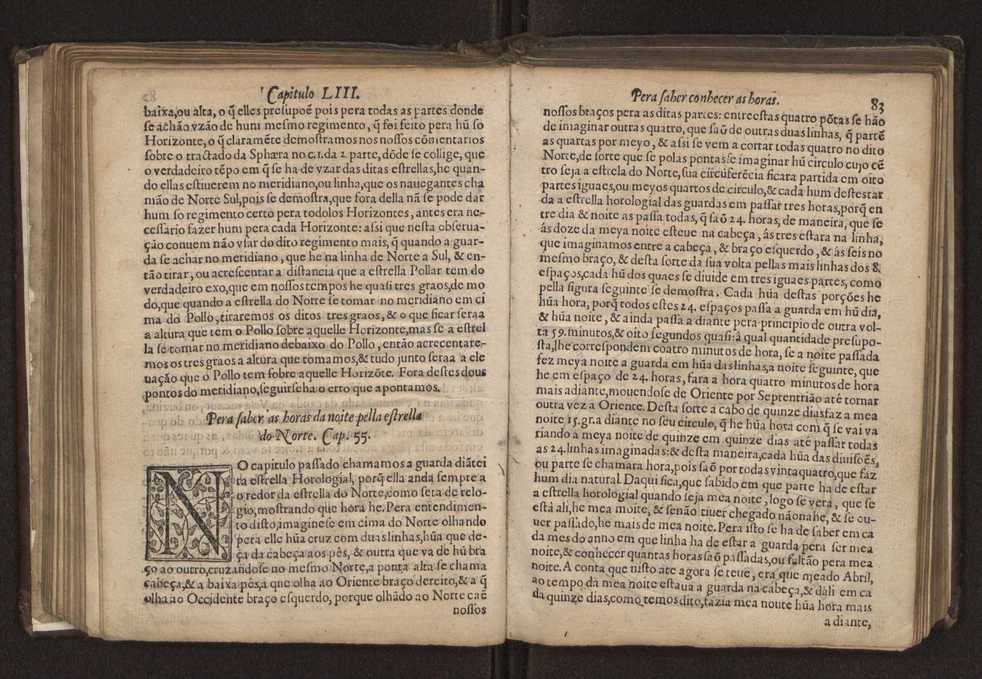 Capitulo LIII.
baixa,ou alta, o q̃ elles presupoẽ pois pera todas as partes donde
se achão vzão de hum mesmo regimento, q̃ foi feito pera hũ so
Horizonte,o q̃ claramẽte demostramos nos nossos cõmentarios
sobre o tractado da Sphæra no c.1.da 2 parte,dõde se collige, que
o verdadeiro tẽpo em q̃ se ha de vzar das ditas estrellas,he quan-
do ellas estiuerem no meridiano,ou linha,que os nauegantes cha
mão de Norte Sul,pois se demostra,que fora della nã se pode dar
hum so regimento certo pera todolos Horizontes, antes era ne-
cessario fazer hum pera cada Horizonte: assi que nesta obserua-
ção conuem não vsar do dito regimento mais, q̃ quando a guar-
da se achar no meridiano, que he na linha de Norte a Sul, & en-
tão tirar, ou acrescentar a distancia que a estrella Pollar tem do
verdadeiro exo,que em nossos tempos he quasi tres graos,de mo
do,que quando a estrella do Norte se tomar no meridiano em ci
ma do Pollo, tiraremos os ditos tres graos, & o que ficar seraa
a altura que tem o Pollo sobre aquelle Horizonte,mas se a estrel
la se tomar no meridiano debaixo do Pollo, então acrecentare-
mos os tres graos a altura que tomamos,& tudo junto seraa a ele
uação que o Pollo tem sobre aquelle Horizõte. Fora destes dous
pontos do meridiano,seguirseha o erro que apontamos.
Pera saber as horas da noite pella estrella
do Norte. Cap. 55.
NO capitulo passado chamamos a guarda diãtei
ra estrella Horologial, porq̃ ella anda sempre a
o redor da estrella do Norte,como seta de relo-
gio,mostrando que hora he. Pera entendimen-
to disto,imaginese em cima do Norte olhando
pera elle hũa cruz com duas linhas,hũa que de-
ça da cabeça aos pês, & outra que va de hũ bra
ço ao outro,cruzandose no mesmo Norte,a ponta alta se chama
cabeça,& a baixa pês,a que olha ao Oriente braço dereito,& a q̃
olha ao Occidente braço esquerdo, porque olhãdo ao Norte caẽ
nossos
Pera saber conhecer as horas.
83
nossos braços pera as ditas partes: entre estas quatro põtas se hão
de imaginar outras quatro, que saõ de outras duas linhas, q̃ partẽ
as quartas por meyo, & assi se vem a cortar todas quatro no dito
Norte,de sorte que se polas pontas se imaginar hũ circulo cujo cẽ
tro seja a estrela do Norte,sua circũferẽcia ficara partida em oito
partes iguaes,ou meyos quartos de circulo,& cada hum destestar
da a estrella horologial das guardas em passar tres horas,porq̃ en
tre dia & noite as passa todas, q̃ saõ 24. horas, de maneira, que se
ás doze da meya noite esteue na cabeça, ás tres estara na linha,
que imaginamos entre a cabeça, & braço esquerdo, & às seis no
mesmo braço, & desta sorte da sua volta pellas mais linhas dos 8
espaços,cada hũ dos quaes se diuide em tres iguaes partes, como
pella figura seguinte se demostra. Cada hũa destas porções he
hũa hora, porq̃ todos estes 24. espaços passa a guarda em hũ dia,
& hũa noite, & ainda passa a diante pera principio de outra vol-
ta 59. minutos,& oito segundos quasi:à qual quantidade presupo-
sta,lhe correspondem coatro minutos de hora, se a noite passada
fez meya noite a guarda em hũa das linhas,a noite seguinte, que
he em espaço de 24. horas, fara a hora quatro minutos de hora
mais adiante,mouendose de Oriente por Septentrião até tornar
outra vez a Oriente. Desta sorte a cabo de quinze dias faz a mea
noite 15.gr.a diante no seu circulo, q̃ he hũa hora com q̃ se vai va
riando a meya noite de quinze em quinze dias até passar todas
as 24.linhas imaginadas:& desta maneira,cada hũa das diuisoẽs,
ou parte se chamara hora,pois saõ por todas vinta quatro,que faz
hum dia natural Daqui fica,que sabido em que parte ha de estar
a estrella horologial quando seja mea noite, logo se verá, que se
está ali,he mea moite, & se não tiuer chegado não na he, & se ou-
uer passado,he mais de mea noite. Pera isto se ha de saber em ca
da mes do anno em que linha ha de estar a guarda pera ser mea
noite,& conhecer quantas horas saõ passadas,ou faltão pera mea
noite. A conta que nisto ate agora se teue, era que meado Abril,
ao tempo da mea noite estaua a guarda na cabeça,& dali em ca
da quinze dias,como temos dito,fazia mea nouite hũa hora mais
a diante,